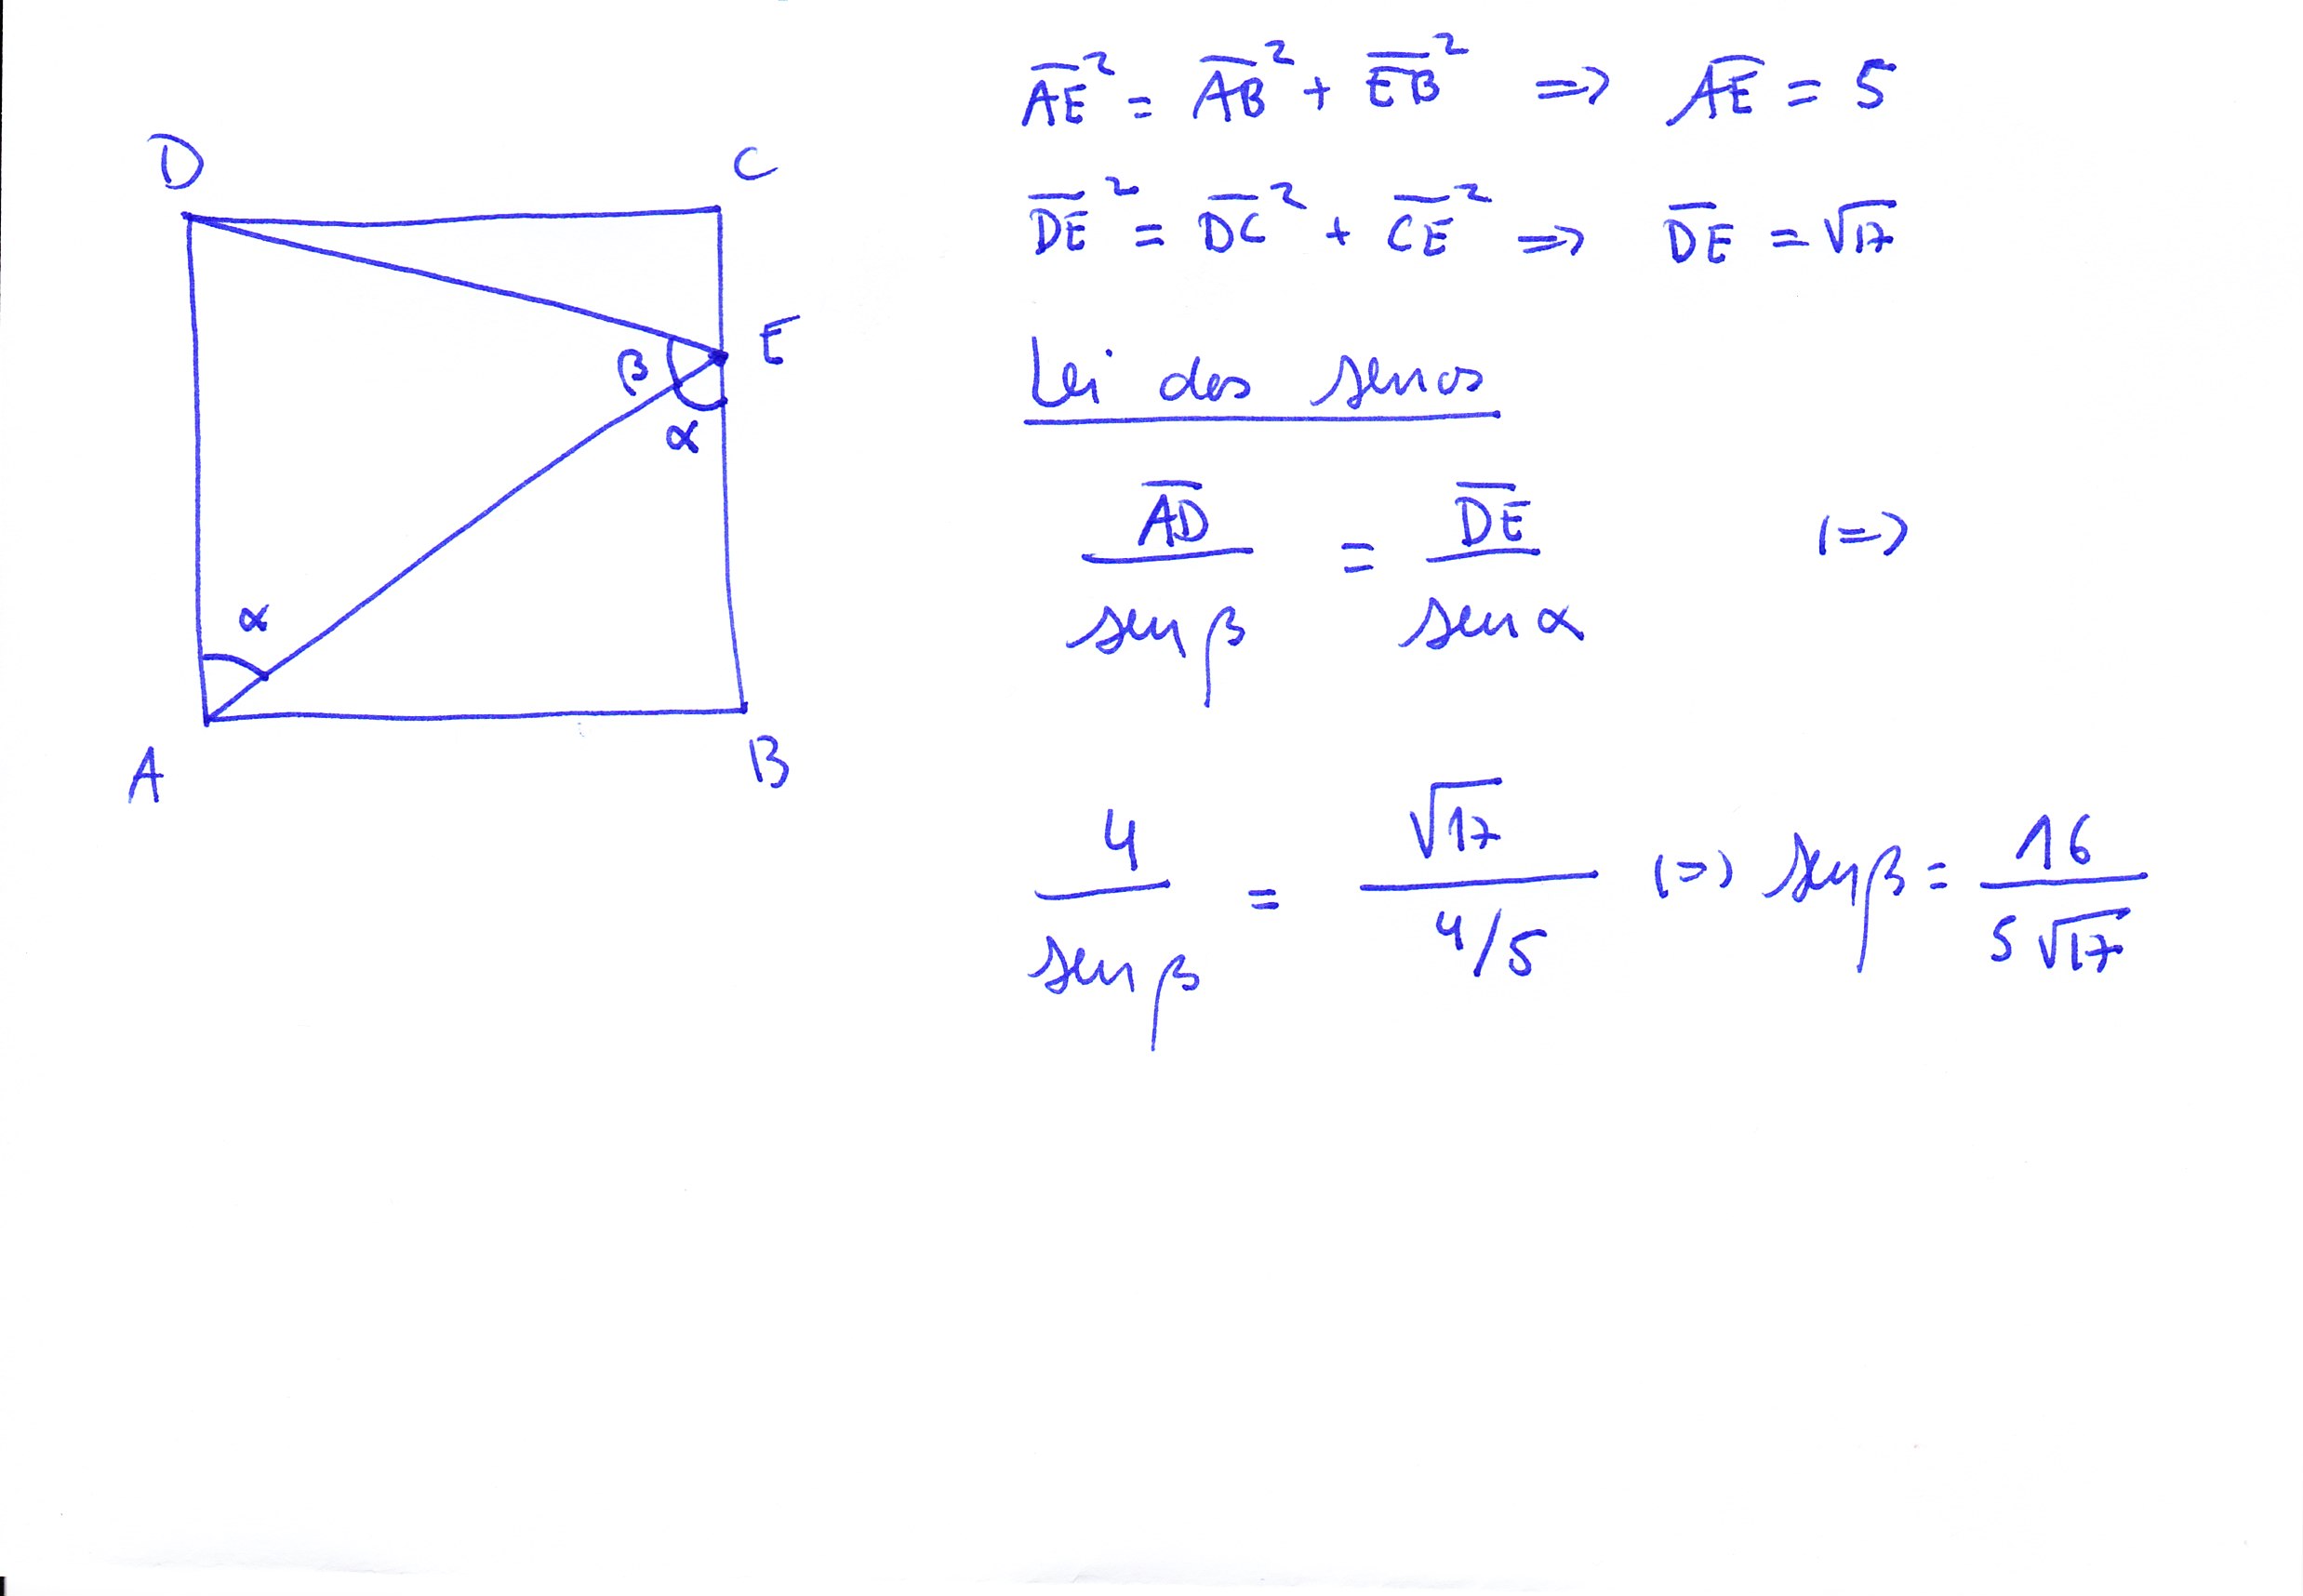 D C
E
β
α
α
A B
AE̅² = AB̅² + EB̅² => AE̅ = 5
DE̅² = DC̅² + CE̅² => DE̅ = √17
Lei dos senos
AD̅ / sen β = DE̅ / sen α (=>
4 / sen β = √17 / 4/5 (=> sen β = 16 / 5√17